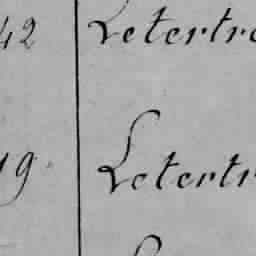 42 Letertre
19. Letertr